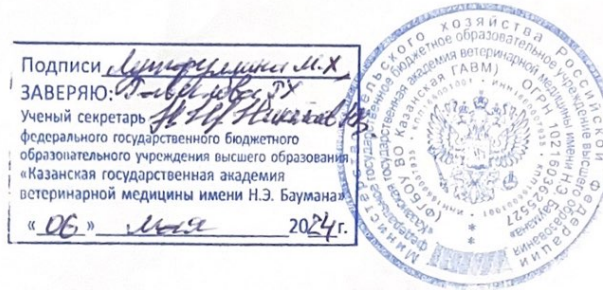 Подписи Лутфуллина М.Х
ЗАВЕРЯЮ: Г.Х
Ученый секретарь
федерального государственного бюджетного
образовательного учреждения высшего образования
«Казанская государственная академия
ветеринарной медицины имени Н.Э. Баумана»
«06» мая 2024 г.
Министерство сельского хозяйства Российской Федерации
федеральное государственное бюджетное образовательное учреждение высшего образования
«Казанская государственная академия ветеринарной медицины имени Н.Э. Баумана»
(ФГБОУ ВО Казанская ГАВМ) ОГРН 1021603625527